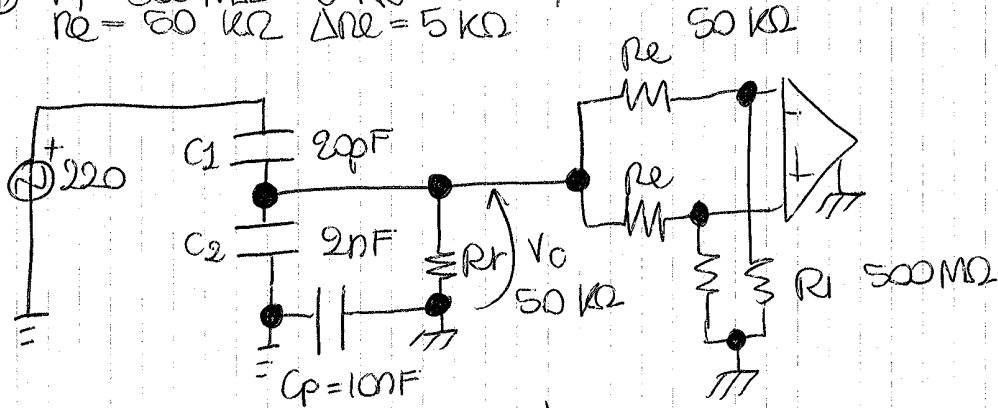 Re = 50 KΩ ΔRe = 5 KΩ
50 KΩ
Re
+
220
C1
20pF
Re
C2
2nF
Rr
Vc
50 KΩ
R1 500MΩ
-
+
Cp = 10nF